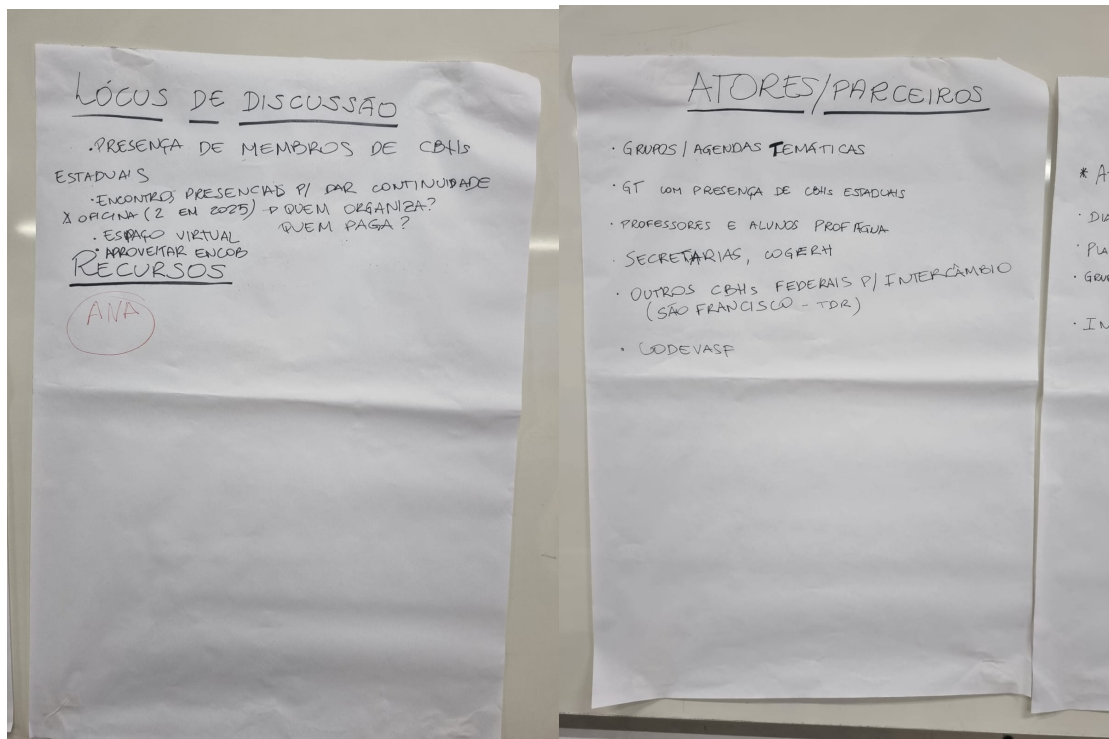 LÓCUS DE DISCUSSÃO
· PRESENÇA DE MEMBROS DE CBHs
ESTADUAIS
· ENCONTROS PRESENCIAIS P/ DAR CONTINUIDADE
À OFICINA (2 EM 2025) → QUEM ORGANIZA?
QUEM PAGA?
· ESPAÇO VIRTUAL
· APROVEITAR ENCOB
RECURSOS
ANA
ATORES/PARCEIROS
· GRUPOS / AGENDAS TEMÁTICAS
· GT COM PRESENÇA DE CBHs ESTADUAIS
· PROFESSORES E ALUNOS PROFÁGUA
· SECRETARIAS, COGERH
· OUTROS CBHs FEDERAIS P/ INTERCÂMBIO
(SÃO FRANCISCO - TDR)
· CODEVASF
* A
· DIA
· PLA
· GRU
· IN